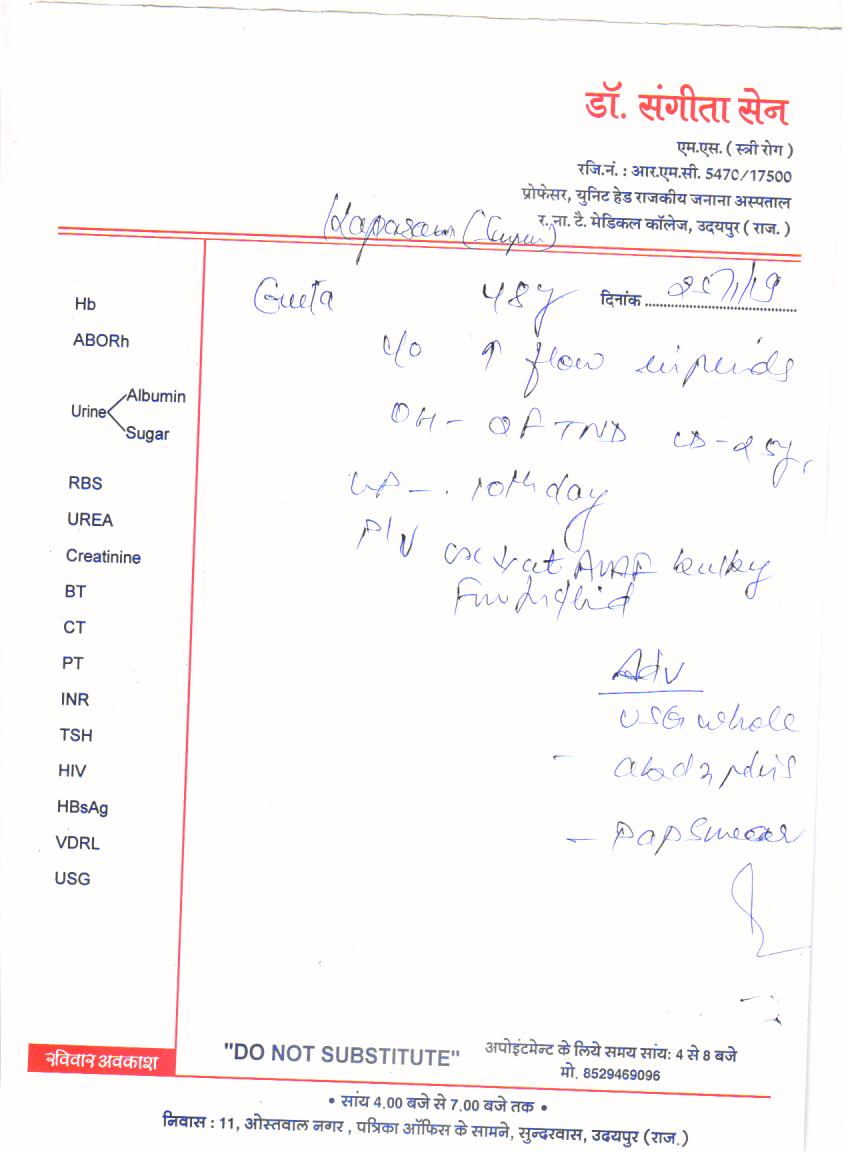 डॉ. संगीता सेन
एम.एस. ( स्त्री रोग )
रजि.नं. : आर.एम.सी. 5470/17500
प्रोफेसर, युनिट हेड राजकीय जनाना अस्पताल
र. ना. टै. मेडिकल कॉलेज, उदयपुर ( राज. )
Geeta 48y दिनांक
c/o ↑ flow in periods
OH - 2FTND LD - 25y,
LMP - 10th day
P/V cx + at AVAF bulky
Adv
USG whole
- abd n pelvis
- pap smear
Hb
ABORh
Urine Albumin
Sugar
RBS
UREA
Creatinine
BT
CT
PT
INR
TSH
HIV
HBsAg
VDRL
USG
रविवार अवकाश
"DO NOT SUBSTITUTE"
अपोइंटमेन्ट के लिये समय सांय: 4 से 8 बजे
मो. 8529469096
• सांय 4.00 बजे से 7.00 बजे तक •
निवास : 11, ओस्तवाल नगर , पत्रिका ऑफिस के सामने, सुन्दरवास, उदयपुर (राज.)